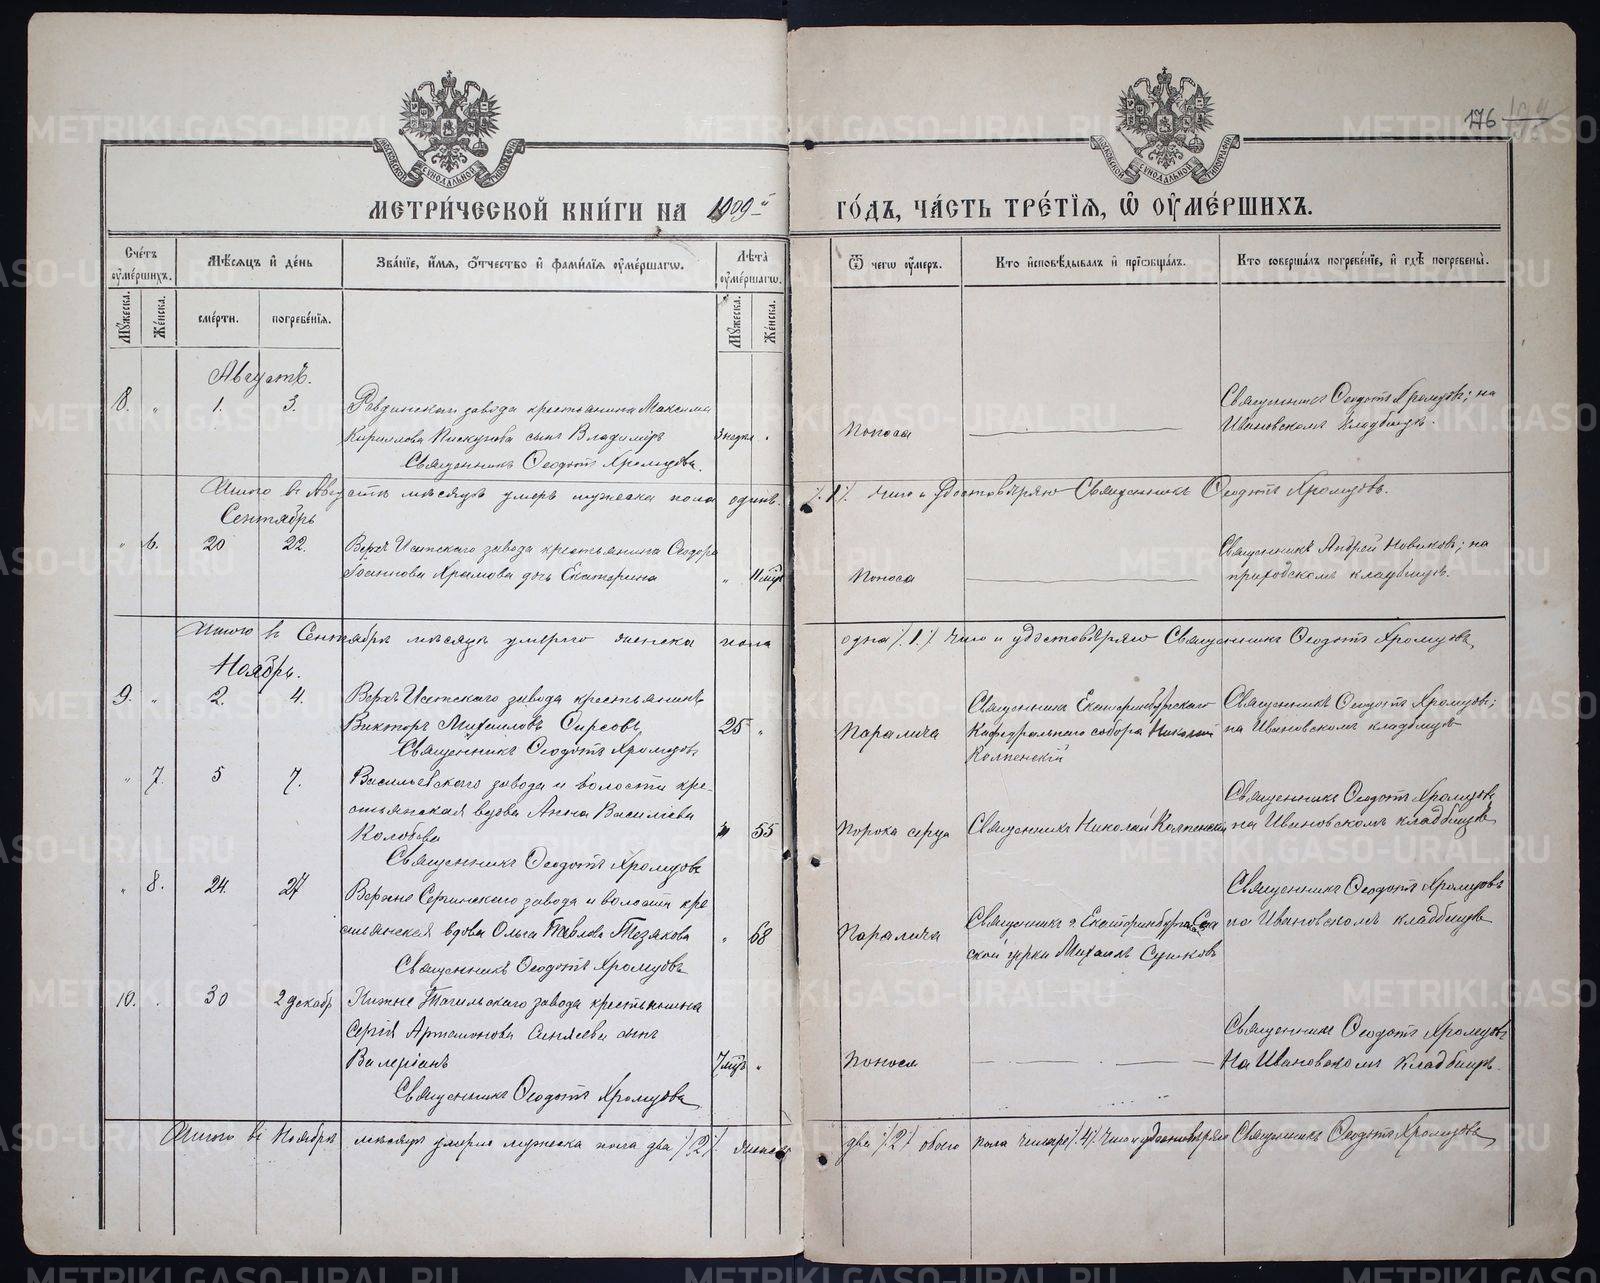 176
МЕТРИЧЕСКОЙ КНИГИ НА 1909й ГОДЪ, ЧАСТЬ ТРЕТІЯ, Ѿ ОУМЕРШИХЪ.
МОСКОВСКОЙ СѴНОДАЛЬНОЙ ТИПОГРАФІИ
МОСКОВСКОЙ СѴНОДАЛЬНОЙ ТИПОГРАФІИ
Счетъ оумершихъ.
Мѣсяцъ и день
Званіе, имя, отчество и фамилія оумершагѡ.
Лѣта оумершагѡ.
Ѿ чегѡ оумеръ.
Кто исповѣдывалъ и пріобщалъ.
Кто совершалъ погребеніе, и гдѣ погребены.
Мужеска.
Женска.
смерти.
погребенія.
Мужеска.
Женска.
Августъ.
8. " 1. 3. Ревдинскаго завода крестьянина Максима
Кириллова Пискунова сынъ Владиміръ 3 недѣл "
Поноса
Священникъ Ѳеодотъ Хромцовъ; на
Ивановскомъ кладбищѣ.
Священникъ Ѳеодотъ Хромцовъ.
Итого въ Августѣ мѣсяцѣ умеръ мужеска пола одинъ. /.1./. что и удостовѣряю Священникъ Ѳеодотъ Хромцовъ.
Сентябрь
" 6. 20 22. Верхъ Исетскаго завода крестьянина Ѳеодора
Іоаннова Храмова дочь Екатерина " 11 мцъ
Поноса
Священникъ Андрей Новиковъ; на
приходскомъ кладбищѣ.
Итого въ Сентябрѣ мѣсяцѣ умерло женска пола одна /.1./. что и удостовѣряю Священникъ Ѳеодотъ Хромцовъ
Ноябрь.
9. " 2. 4. Верхъ Исетскаго завода крестьянинъ
Викторъ Михаиловъ Сиресовъ 25 "
Священникъ Ѳеодотъ Хромцовъ
Паралича
Священникъ Екатеринбургскаго
Кафедральнаго собора Николай
Колпенскій
Священникъ Ѳеодотъ Хромцовъ;
на Ивановскомъ кладбищѣ
" 7. 5 7. Васильевскаго завода и волости кре-
стьянская вдова Анна Василіева
Колобова " 55
Священникъ Ѳеодотъ Хромцовъ
Порока серца
Священникъ Николай Колпенскій
Священникъ Ѳеодотъ Хромцовъ
на Ивановскомъ кладбищѣ
" 8. 24. 27 Верхне Сергинскаго завода и волости кре
стьянская вдова Ольга Павлова Тезякова " 68
Священникъ Ѳеодотъ Хромцовъ
Паралича
Священникъ г. Екатеринбурга
ской церкви Михаилъ Сушковъ
Священникъ Ѳеодотъ Хромцовъ
на Ивановскомъ кладбищѣ
10. " 30 2 декабр Нижне Тагильскаго завода крестьянина
Сергія Артамонова Синяева сынъ
Валеріанъ 7 мцъ "
Священникъ Ѳеодотъ Хромцовъ
Поноса
Священникъ Ѳеодотъ Хромцовъ
На Ивановскомъ кладбищѣ.
Итого въ Ноябрѣ мѣсяцѣ умерли мужеска пола два /.2./. женска двѣ /.2./ обоего пола четыре /.4./ что и удостовѣряю Священникъ Ѳеодотъ Хромцовъ
METRIKI.GASO-URAL.RU